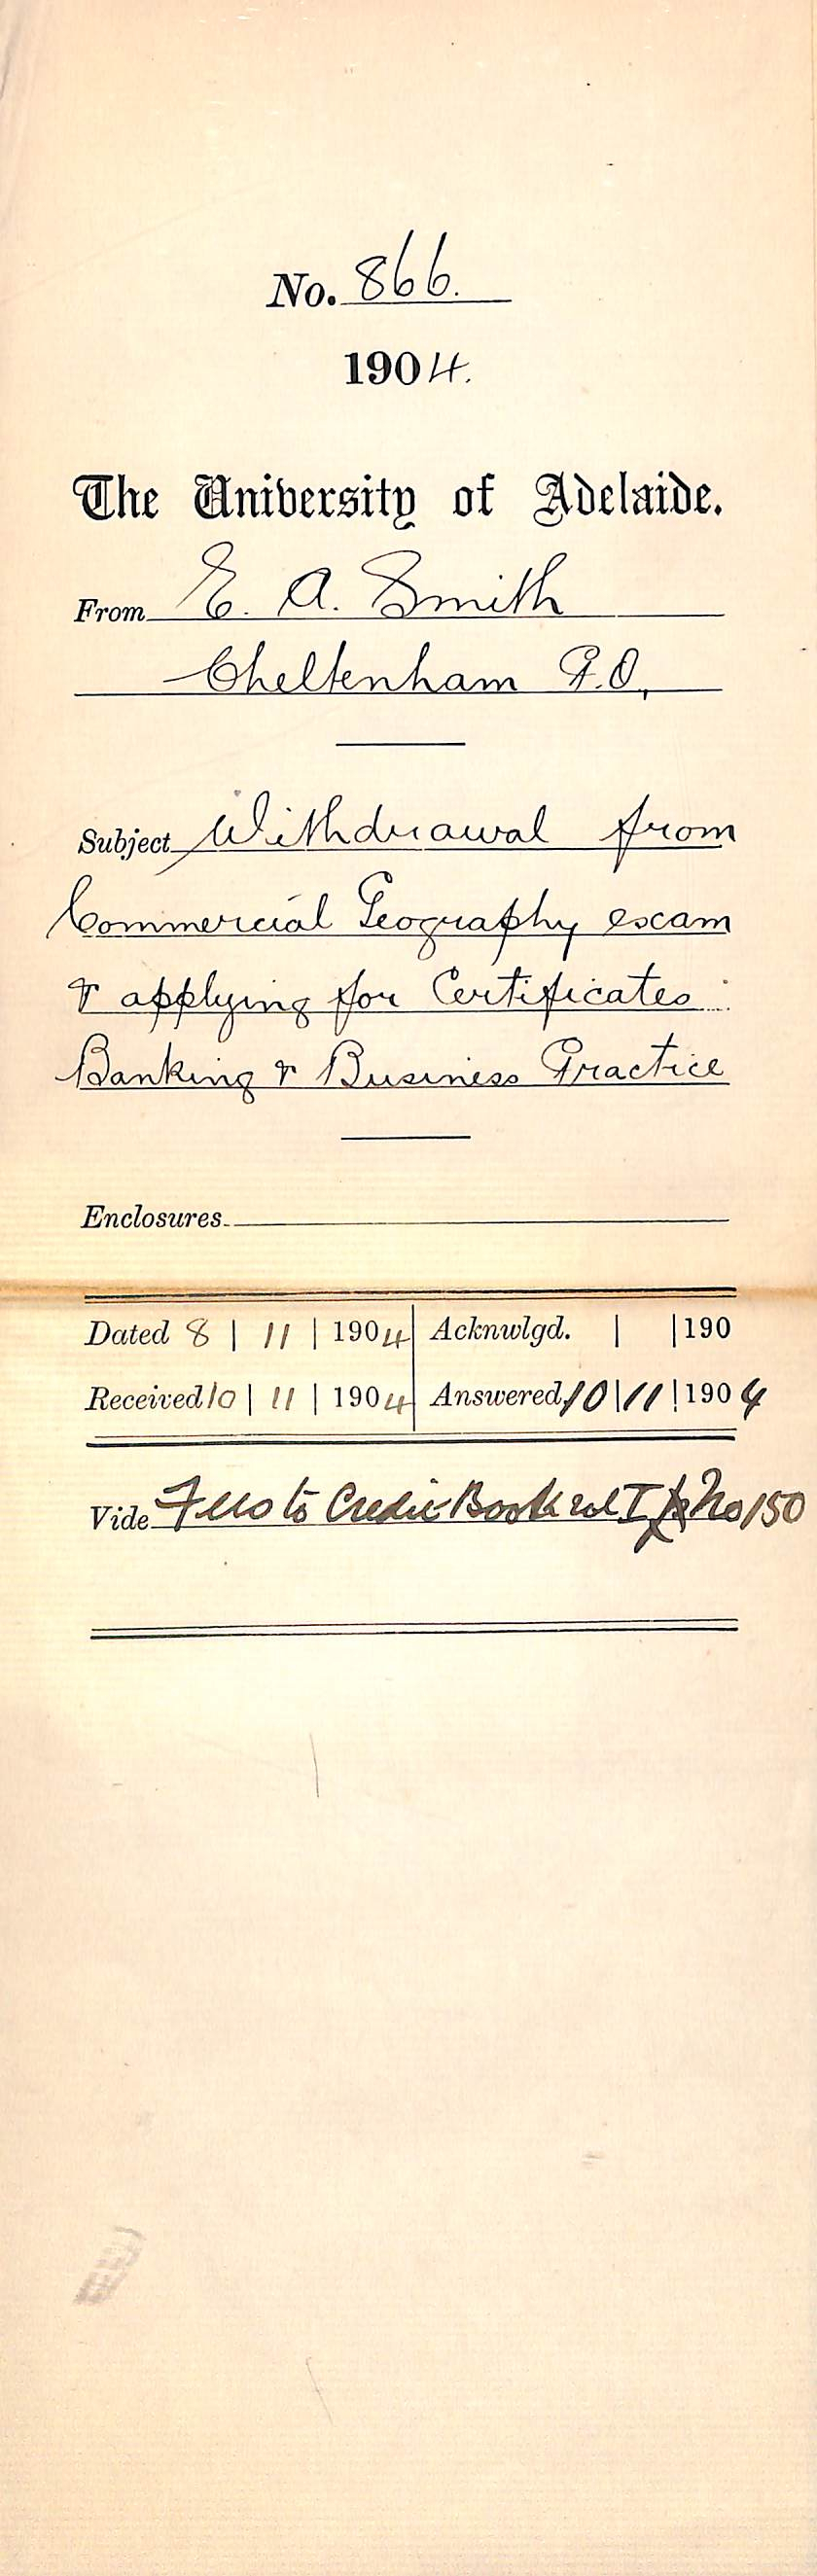 No. 866.
1904.
The University of Adelaide.
From E. A. Smith
Cheltenham P.O.
Subject Withdrawal from
Commercial Geography exam
& applying for Certificates:
Banking & Business Practice
Enclosures
Dated 8 | 11 | 1904 Acknwlgd. | | 190
Received 10 | 11 | 1904 Answered 10 | 11 | 1904
Vide Fees to Credit Book vol I No 150